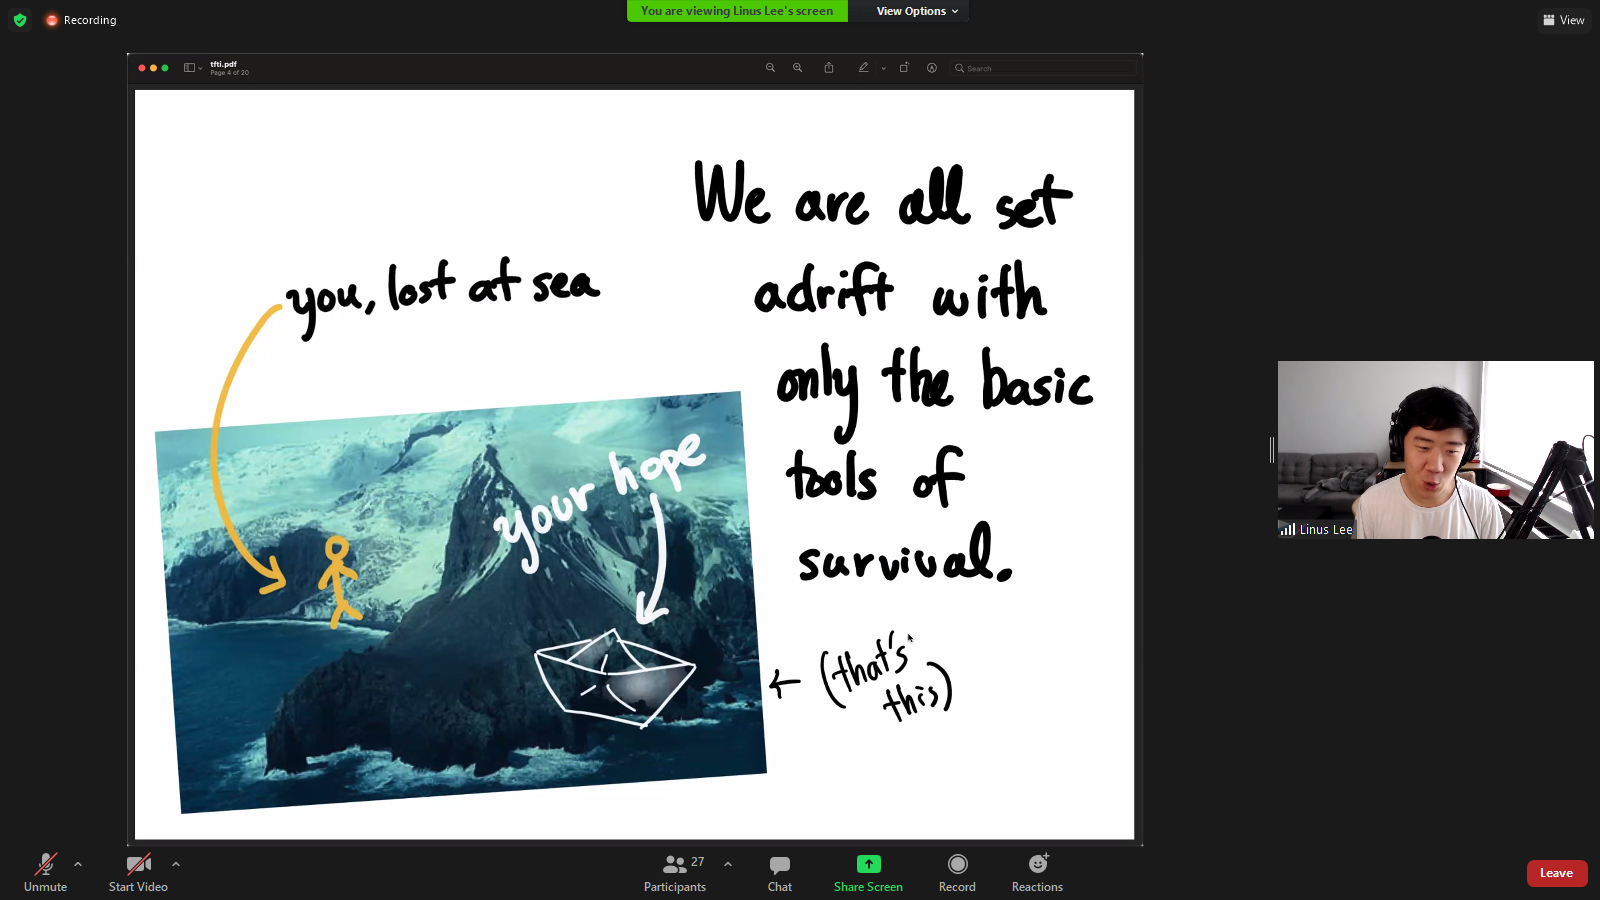 Recording
You are viewing Linus Lee's screen
View Options
View
tfti.pdf
Page 4 of 20
Search
We are all set
adrift with
only the basic
tools of
survival.
you, lost at sea
your hope
(that's
this)
Linus Lee
Unmute
Start Video
Participants
27
Chat
Share Screen
Record
Reactions
Leave